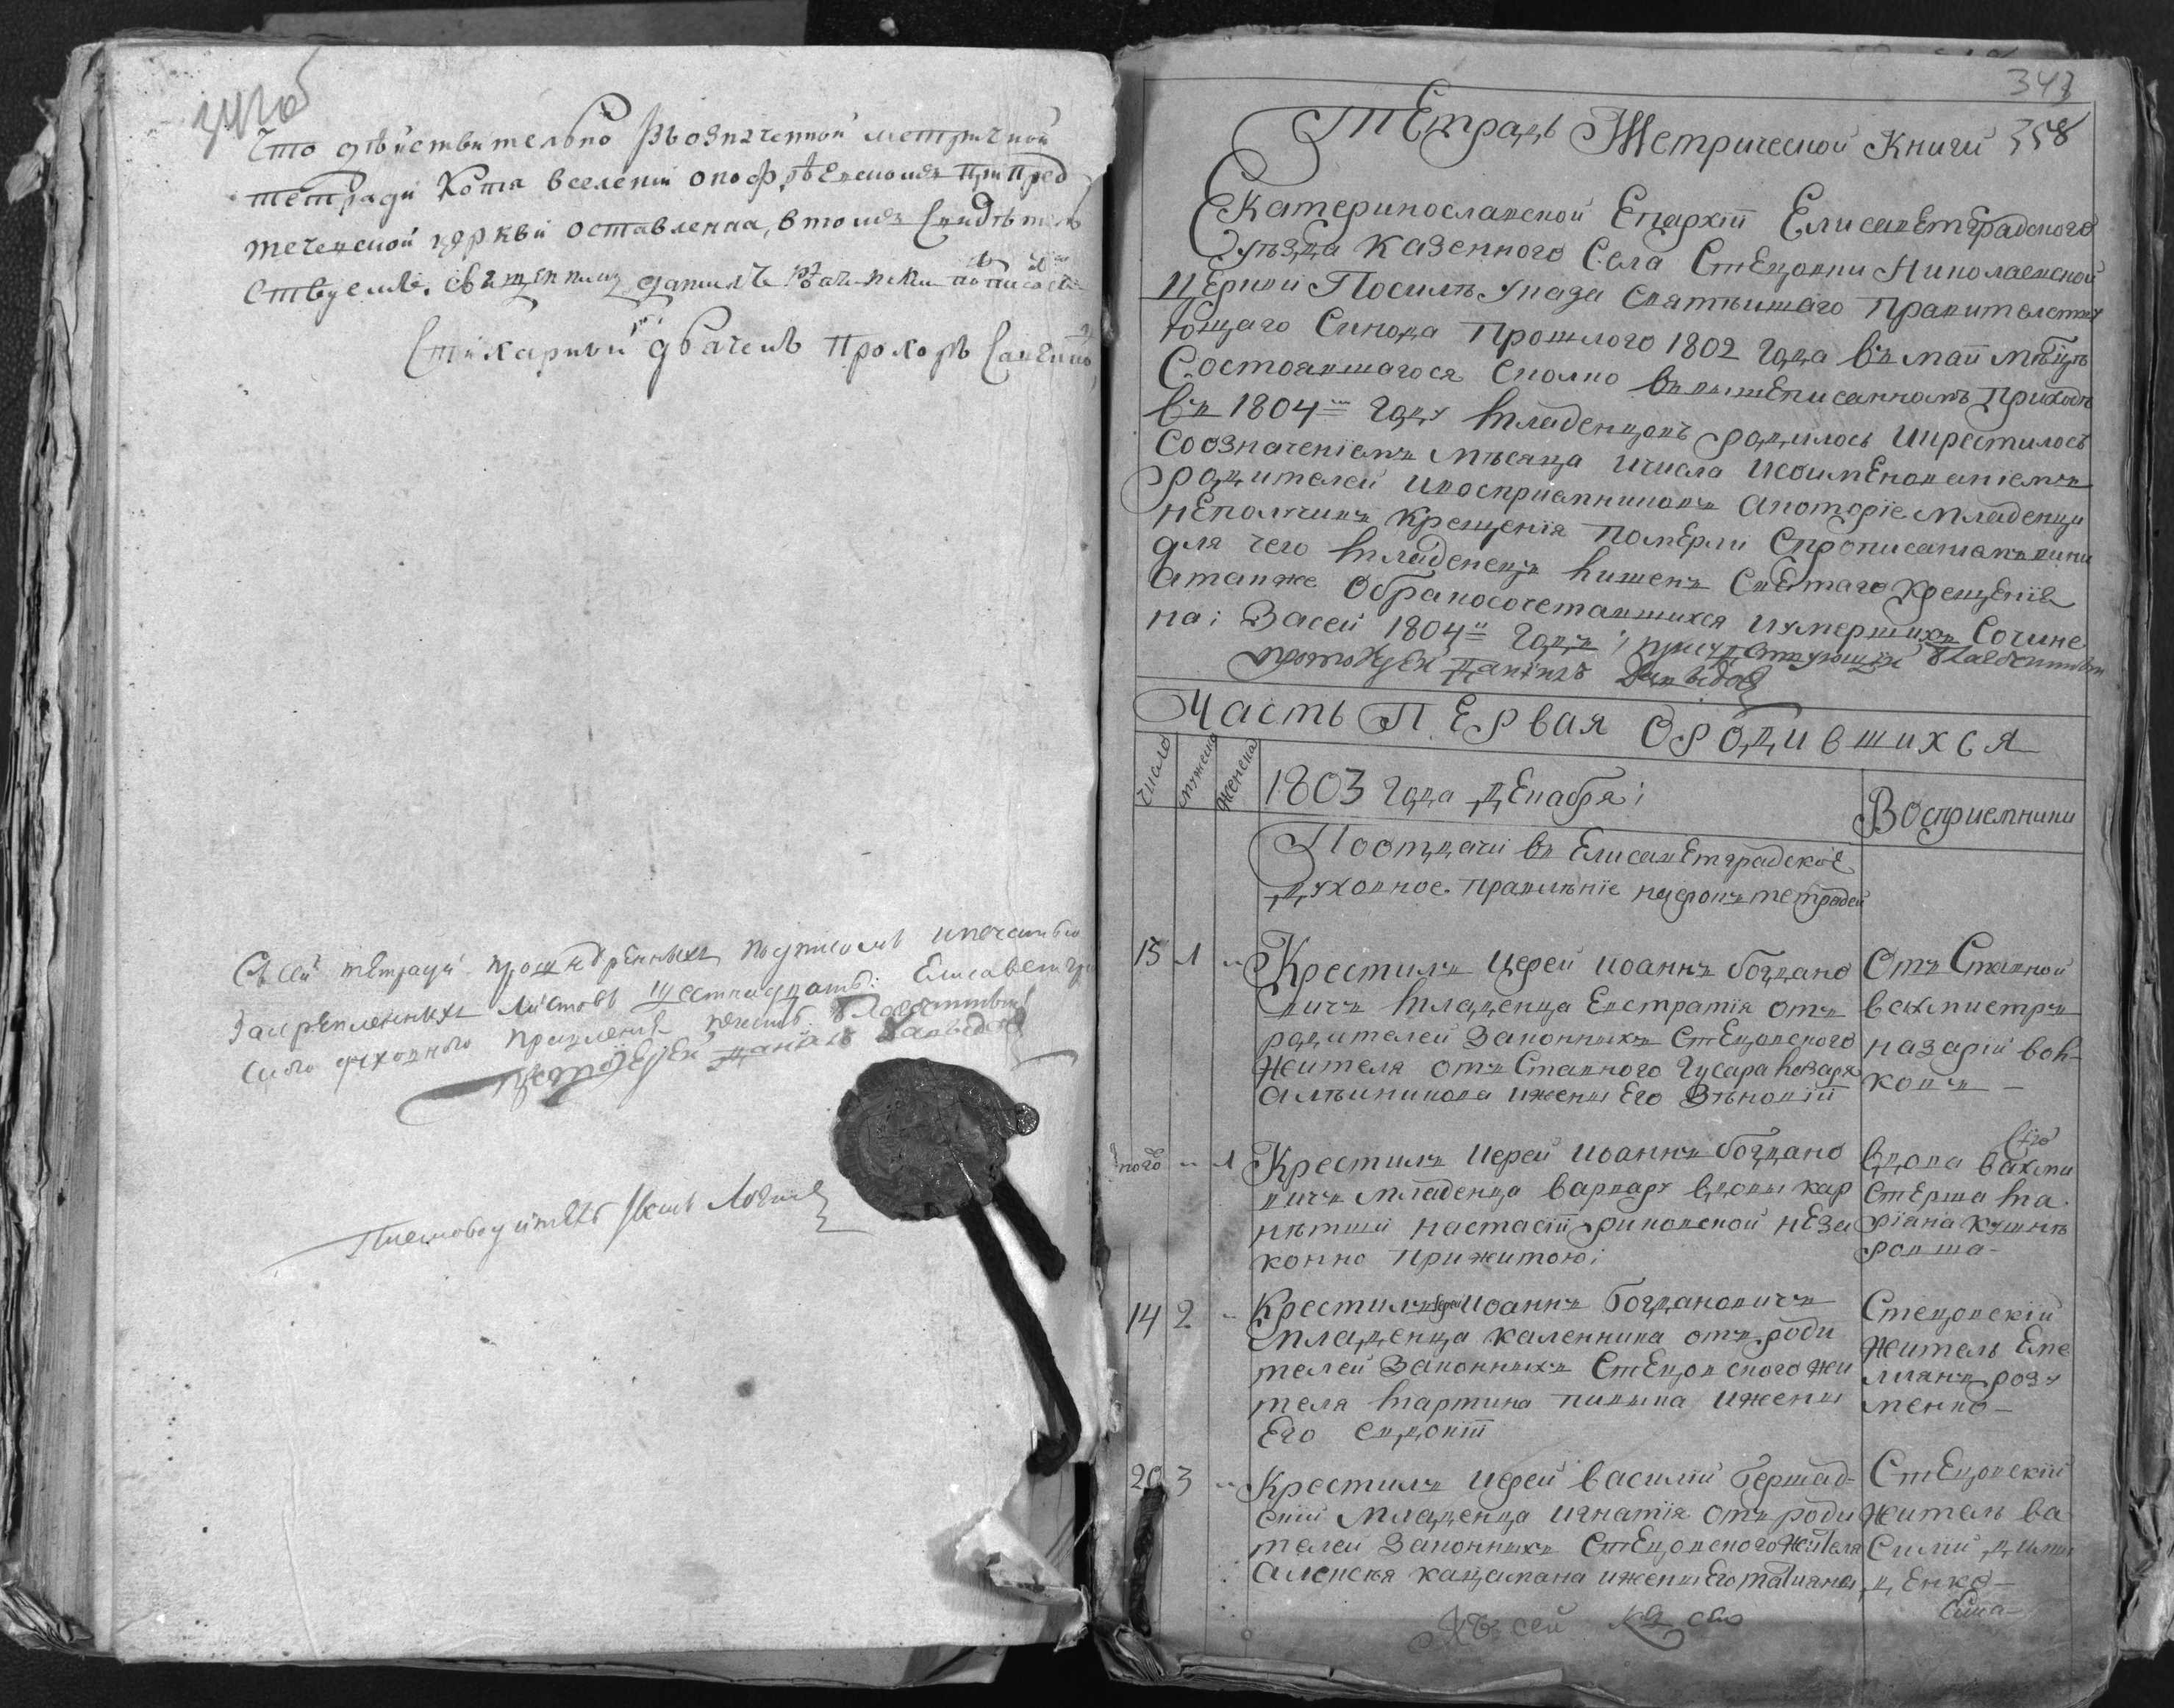 Что действительно въ означенной метричной
тетради копія вселеніи
теченской церкви оставленна, в томъ свидѣтель
ствуемъ. священникъ
Стихарный дьячекъ Прохоръ
Въ сей тетради прошнурѣнныхъ подписомъ ипечатью
закрѣпленныхъ листовъ шестнадцать: Елисаветгра
цкого духовного правленія
протоіерей Даніилъ Давидовъ
Писмоводитель
343
358
Тетрадь Метрической Книги
Екатеринославской Епархіи Елисаветградского
Уѣзда Казенного Села Стецовки Николаевской
Церкви Посилѣ Указа святѣишаго Правителству
ющаго Синода Прошлого 1802 Года въ маи мѣсяцѣ
Состоявшагося сколко ввышеписанномъ Приходѣ
въ 1804м Году младенцовъ родилось икрестилось
Соозначеніемъ мѣсяца ичисла исоименованіемъ
родителей ивоспріемниковъ акоторіе младенци
неполучивъ крещенія померли спрописаніемъ вини
для чего младенецъ лишенъ святаго крещенія
атакже обракосочетавшихся иумершихъ Сочине
на: Засей 1804й Годъ; присудствующій
протоіерей Даніилъ Давидовъ
Часть Первая Ородившихся
число
мужеска
женска
1803 года Декабря:
Восприемники
Поотдачи въ Елисаветградское
духовное правлѣніе шнуровъ тетрадей
15 1 " Крестилъ Иерей Иоаннъ Богдано
вичъ младенца Евстратія отъ
родителей законныхъ Стецовского
жителя отъ Ставного Гусара Назаря
Алѣиникова ижени его Зѣновіи
Отъ Ставной
вахмистръ
назарій вов-
ковъ –
того " 1 Крестилъ Иерей Иоаннъ Богдано
вичъ младенца варвару вдови кар
нѣтши настасіи риковской неза
конно прижитою:
Вдова вахми
стерша ма
ріана кушнѣ
ровша –
14 2 " Крестилъ Иерей Иоаннъ Богдановичъ
младенца каленника отъ роди
телей законныхъ Стецовского жи
теля мартина пивыка ижени
Его евдокіи
Стецовскій
житель Еме
лиянъ розу
менко –
20 3 " Крестилъ Иерей василій Бершад-
скій младенца игнатія отъ роди
телей законныхъ Стецовского жителя
алексѣя кацапана ижени Его татияни
Стецовскій
житель ва
силій
денко –
Къ сей